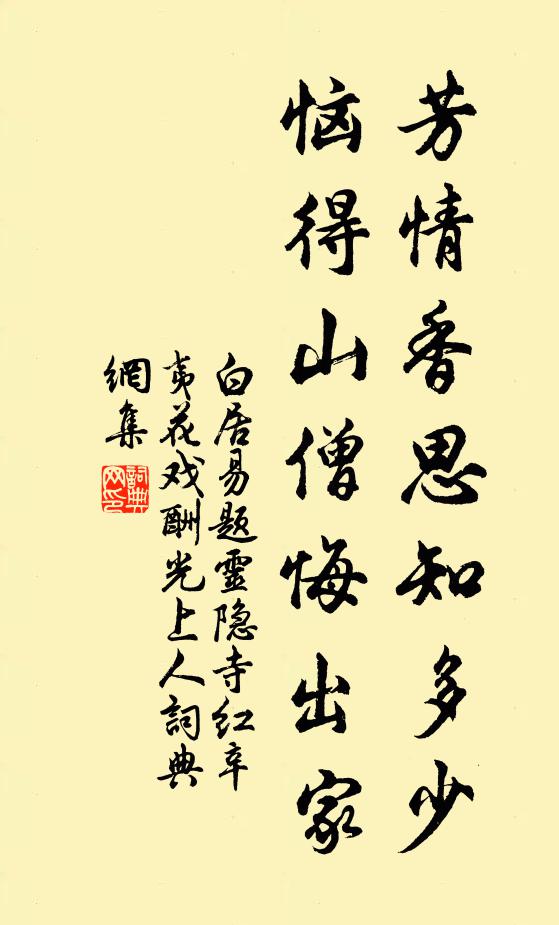 芳情香思知多少
恼得山僧悔出家
白居易题靈隐寺红辛
夷花戏酬光上人詞典
網集
詞典網印